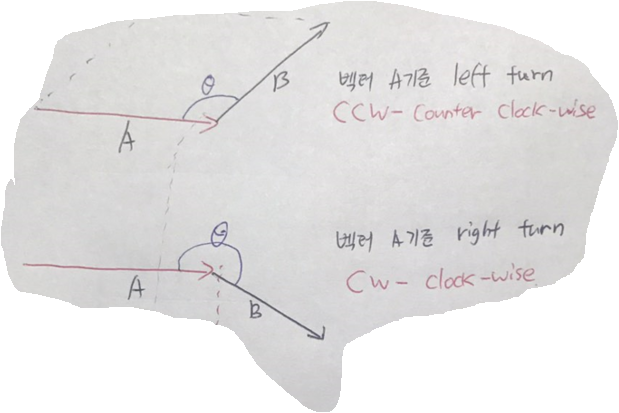 θ
B
벡터 A기준 left turn
CCW- Counter Clock-wise
A
θ
벡터 A기준 right turn
CW- Clock-wise
A
B